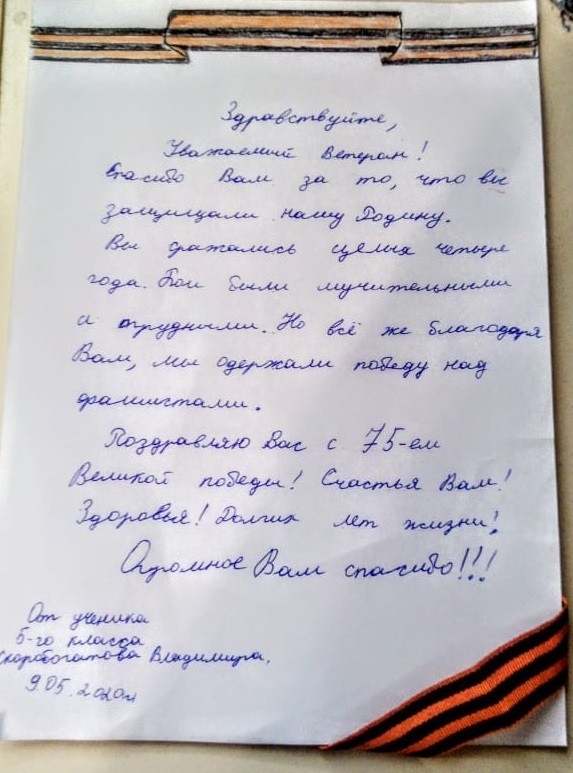 Здравствуйте,
Уважаемый Ветеран!
Спасибо Вам за то, что вы
защищали нашу Родину.
Вы сражались целых четыре
года. Бои были мучительными
и трудными. Но всё же благодаря
Вам, мы одержали победу над
фашистами.
Поздравляю Вас с 75-ем
Великой победы! Счастья Вам!
Здоровья! Долгих лет жизни!
Огромное Вам спасибо!!!
От ученика
5-го класса
Скоробогатова Владимира.
9.05.2020г